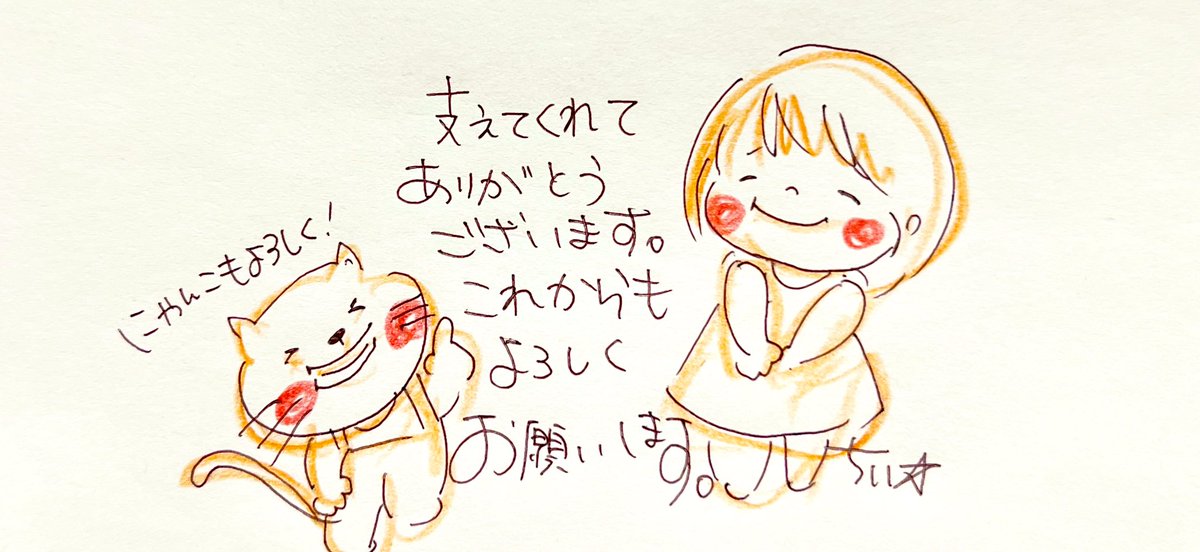 支えてくれて
ありがとう
ございます。
これからも
よろしく
お願いします。
にゃんこもよろしく!
ちい☆